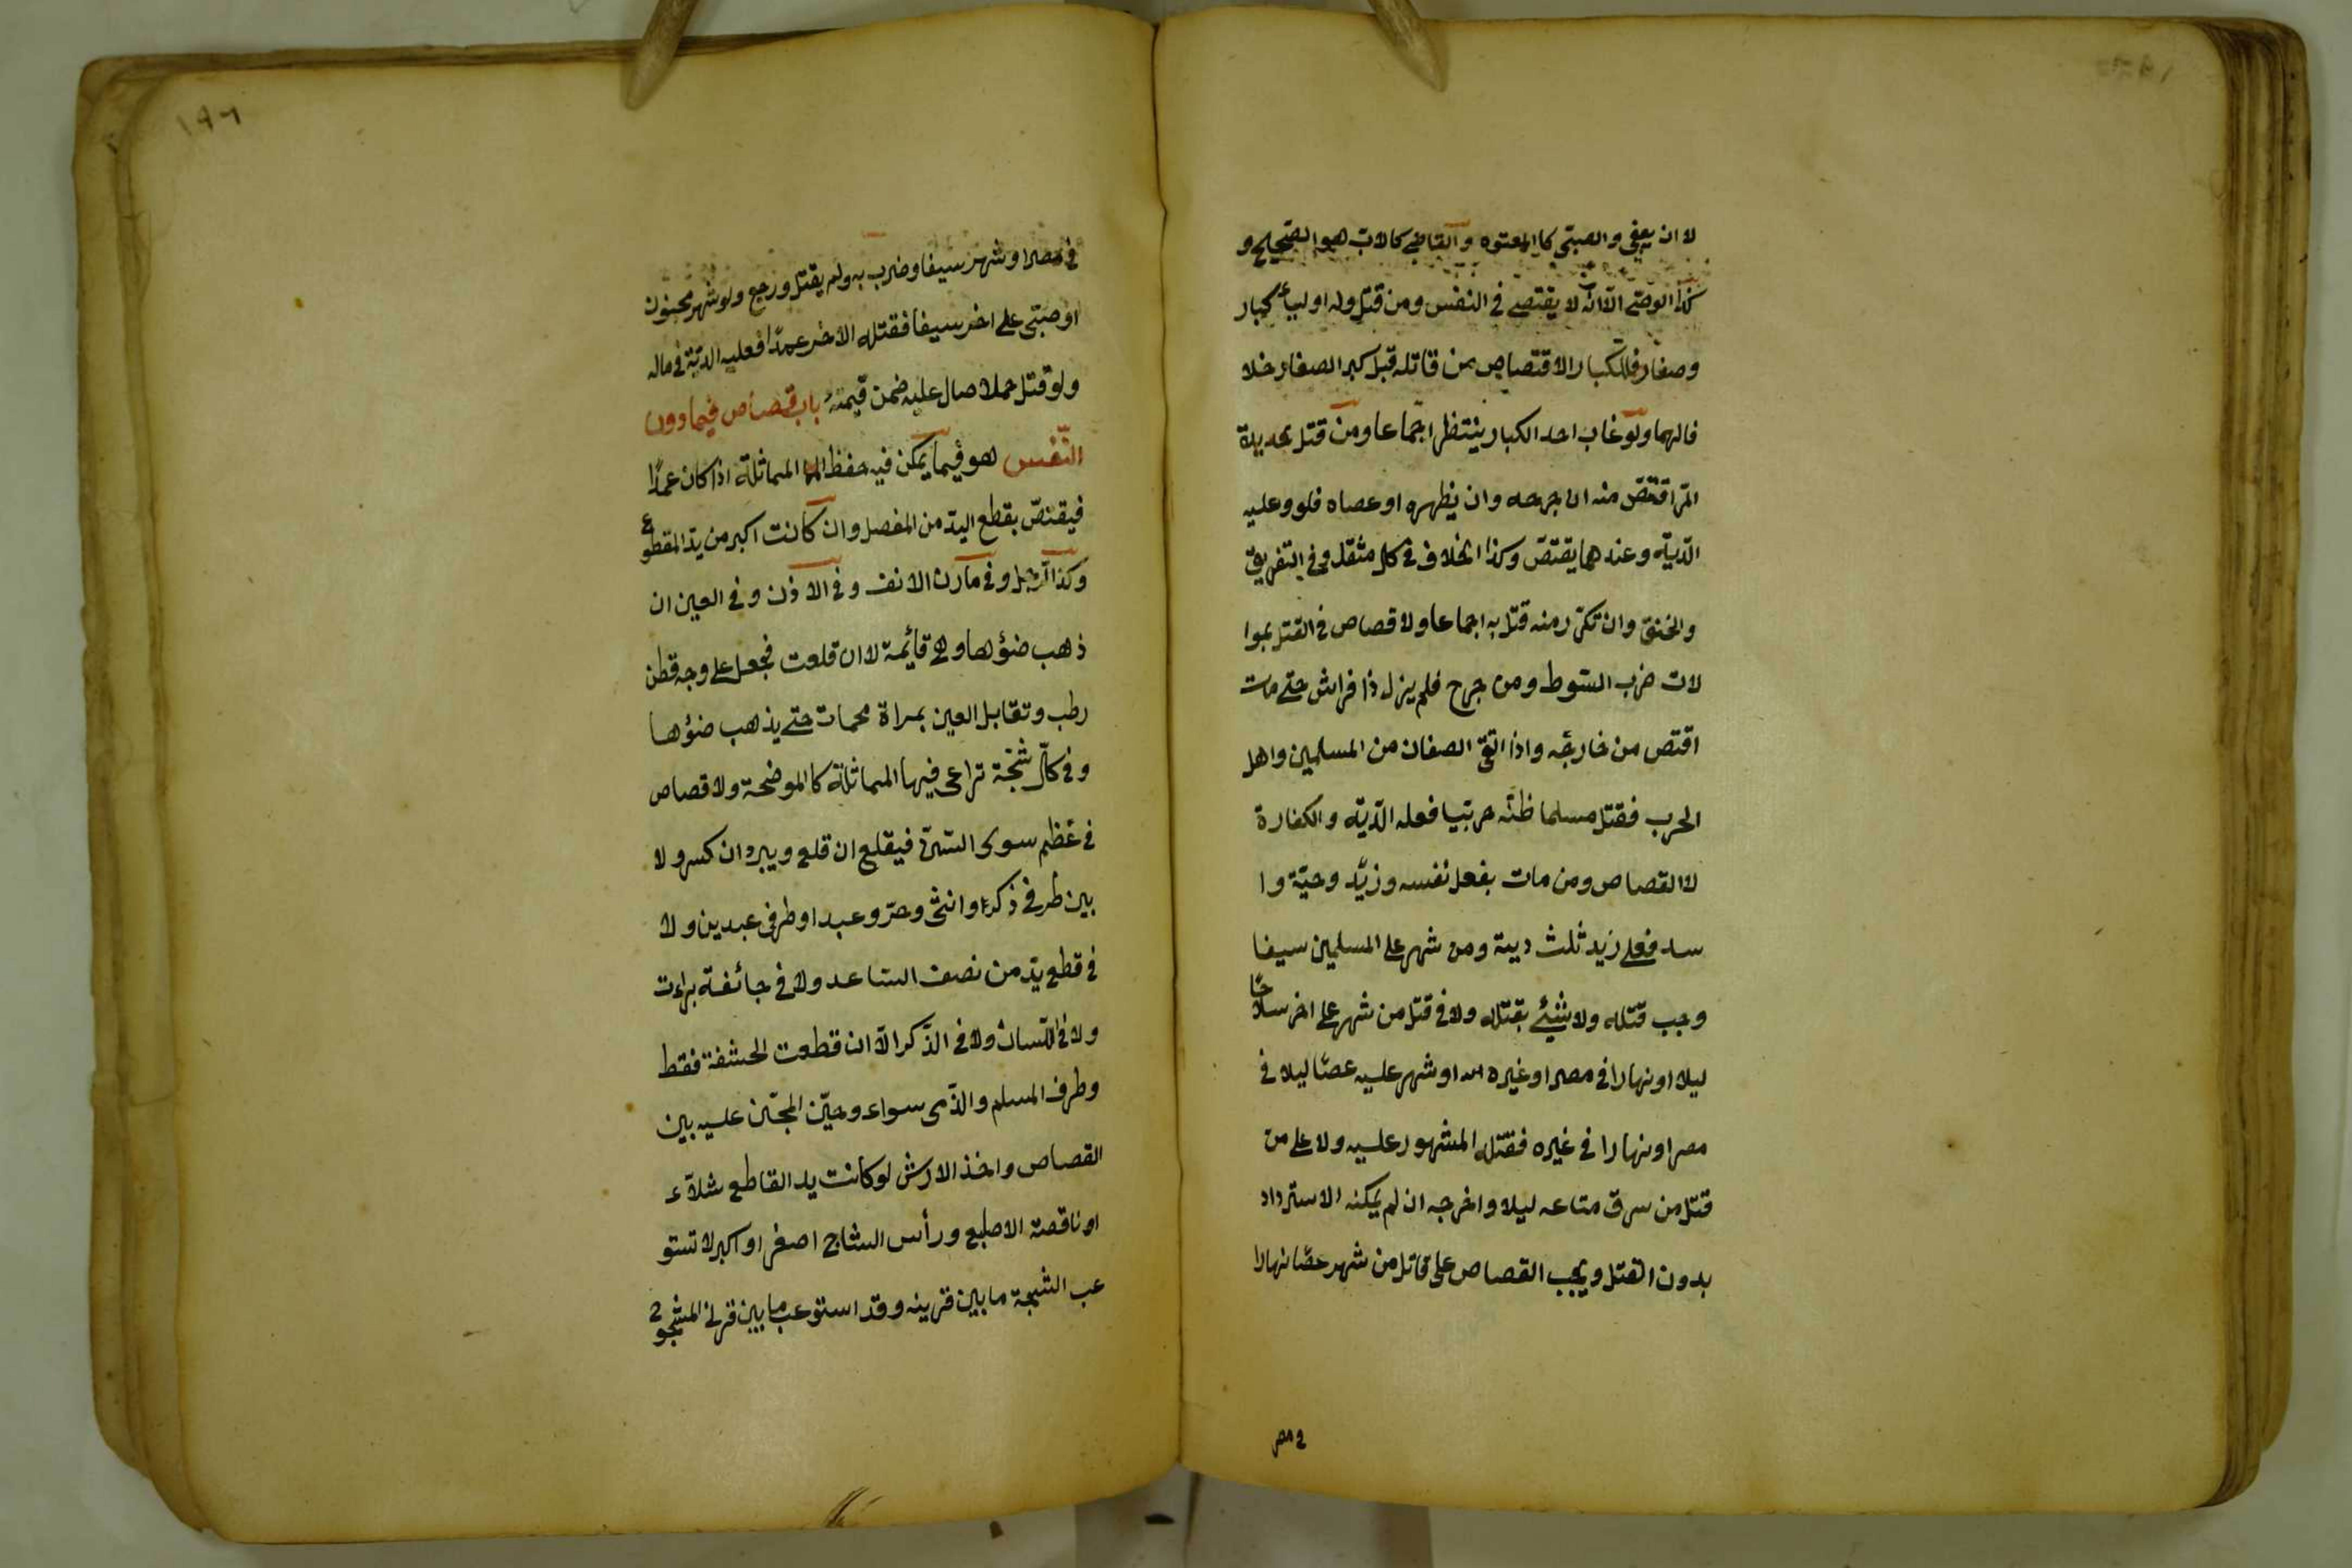 لا ان يعفى والصبىّ كا المعتوه والقاضى كالاب هو الصحيح و
كذا الوصّى الّا انّه لا يقتص فى النفس ومن قتل وله اولياء كبار
وصغار فللكبار الاقتصاص من قاتله قبل كبر الصغار خلا
فالهما ولو غاب احد الكبار ينتظر اجماعا ومن قتل بحديدة
المّر اقتصّ منه ان جرحه وان بظهره او عصاه فلا وعليه
الدّية وعندهما يقتصّ وكذا الخلاف فى كل مثقل وفى التفريق
والخنق وان تكرّر منه قتل به اجماعا ولا قصاص فى القتل بموا
لات ضرب السّوط ومن جرح فلم يزل ذا فراش حتى مات
اقتص من خارجه واذا التقى الصفان من المسلمين واهل
الحرب فقتل مسلما ظنّه حربيّا فعله الدّية والكفارة
لا القصاص ومن مات بفعل نفسه وزيد وحيّة وا
سد فعلى زيد ثلث دية ومن شهر على المسلمين سيفا
وجب قتله ولا شيئ بقتله ولا فى قتل من شهر على اخر سلاحًا
ليلا او نهارا فى مصر او غيره او شهر عليه عصًا ليلا فى
مصر او نهارا فى غيره فقتله المشهور عليه ولا على من
قتل من سرق متاعه ليلا واخرجه ان لم يمكنه الاسترداد
بدون القتل ويجب القصاص على قاتل من شهر عصًا نهارا
فى مصر
١٩٦
فى مصر او شهر سيفا وضرب به ولم يقتل ورجع ولو شهر مجنون
او صبىّ على اخر سيفا فقتله الاخر عمدًا فعليه الديّة فى ماله
ولو قتل جملا صال عليه ضمن قيمته باب قصاص فيما دون
النّفس هو فيما يمكن فيه حفظ المماثلة اذا كان عمدًا
فيقتصّ بقطع اليد من المفصل وان كانت اكبر من يد المقطوع
وكذا الرّجل وفى مارن الانف وفى الاذن وفى العين ان
ذهب ضؤها وهى قائمة لا ان قلعت فيجعل على وجه قطن
رطب وتقابل العين بمراة محمات حتى يذهب ضؤها
وفى كلّ شجّة تراعى فيها المماثلة كا الموضحة ولا قصاص
فى عظم سوى السّن فيقلع ان قلع ويبرد ان كسر ولا
بين طرفى ذكر وانثى وحرّ وعبد او طرفى عبدين ولا
فى قطع يد من نصف الساعد ولا فى جائفة براءت
ولا فى اللّسان ولا فى الذّكر الّا ان قطعت الحشفة فقط
وطرف المسلم والذّمى سواء وخيّر المجنى عليه بين
القصاص واخذ الارش لو كانت يد القاطع شلّاء
او ناقصة الاصابع ورأس الشاج اصغر او اكبر لا تستو
عب الشجة ما بين قرنيه وقد استوعب ما بين قرنى المشجوج